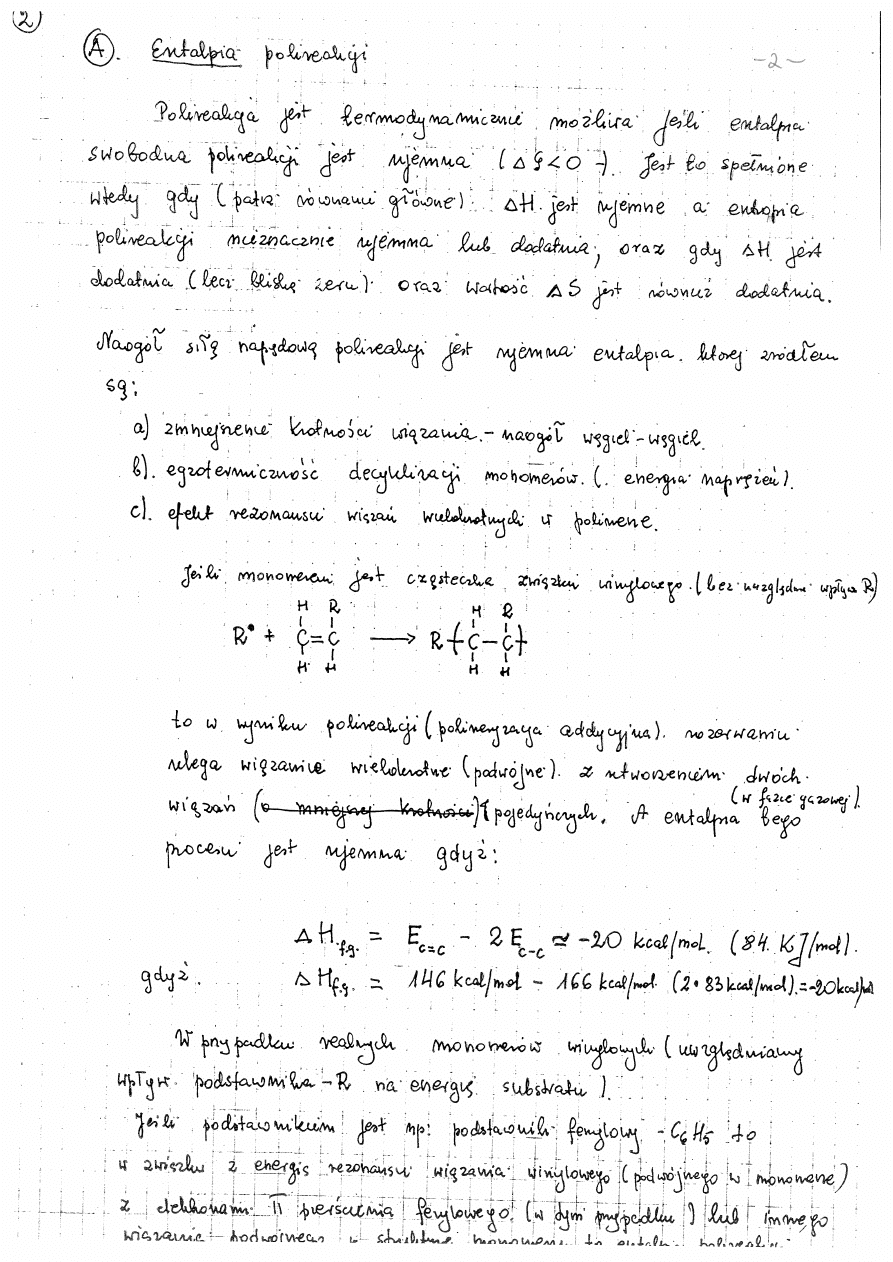 2
A. Entalpia polireakcji
-2-
Polireakcja jest termodynamicznie możliwa jeśli entalpia
swobodna polireakcji jest ujemna (ΔG<0). Jest to spełnione
wtedy gdy (patrz równanie główne) ΔH jest ujemne a entropia
polireakcji nieznacznie ujemna lub dodatnia, oraz gdy ΔH jest
dodatnia (lecz bliska zeru) oraz wartość ΔS jest również dodatnia.
Naogół siłą napędową polireakcji jest ujemna entalpia, której źródłem
są:
a) zmniejszenie krotności wiązania - naogół węgiel-węgiel.
b). egzotermiczność decyklizacji monomerów. (energia naprężeń).
c). efekt rezonansu wiązań wielokrotnych w polimerze.
Jeśli monomerem jest cząsteczka związku winylowego. (bez uwzględn. wpływu R)
H R H R
R• + C=C → R-(C-C)-
H H H H
to w wyniku polireakcji (polimeryzacja addycyjna). rozerwaniu
ulega wiązanie wielokrotne (podwójne). z utworzeniem dwóch
(w fazie gazowej).
wiązań (o mniejszej krotności) pojedyńczych. A entalpia tego
procesu jest ujemna gdyż:
ΔH f.g. = E c=c - 2 E c-c ≅ -20 kcal/mol. (84 KJ/mol).
gdyż. ΔH f.g. = 146 kcal/mol - 166 kcal/mol. (2•83 kcal/mol).=-20 kcal/mol
W przypadku realnych monomerów winylowych (uwzględniamy
wpływ podstawnika -R na energię substratu).
Jeśli podstawnikiem jest np: podstawnik fenylowy -C6H5 to
w związku z energią rezonansu wiązania winylowego (podwójnego w monomerze)
z elektronami π pierścienia fenylowego (w tym przypadku) lub innego
wiązania podwójnego w strukturze monomeru to entalp. polireakcji